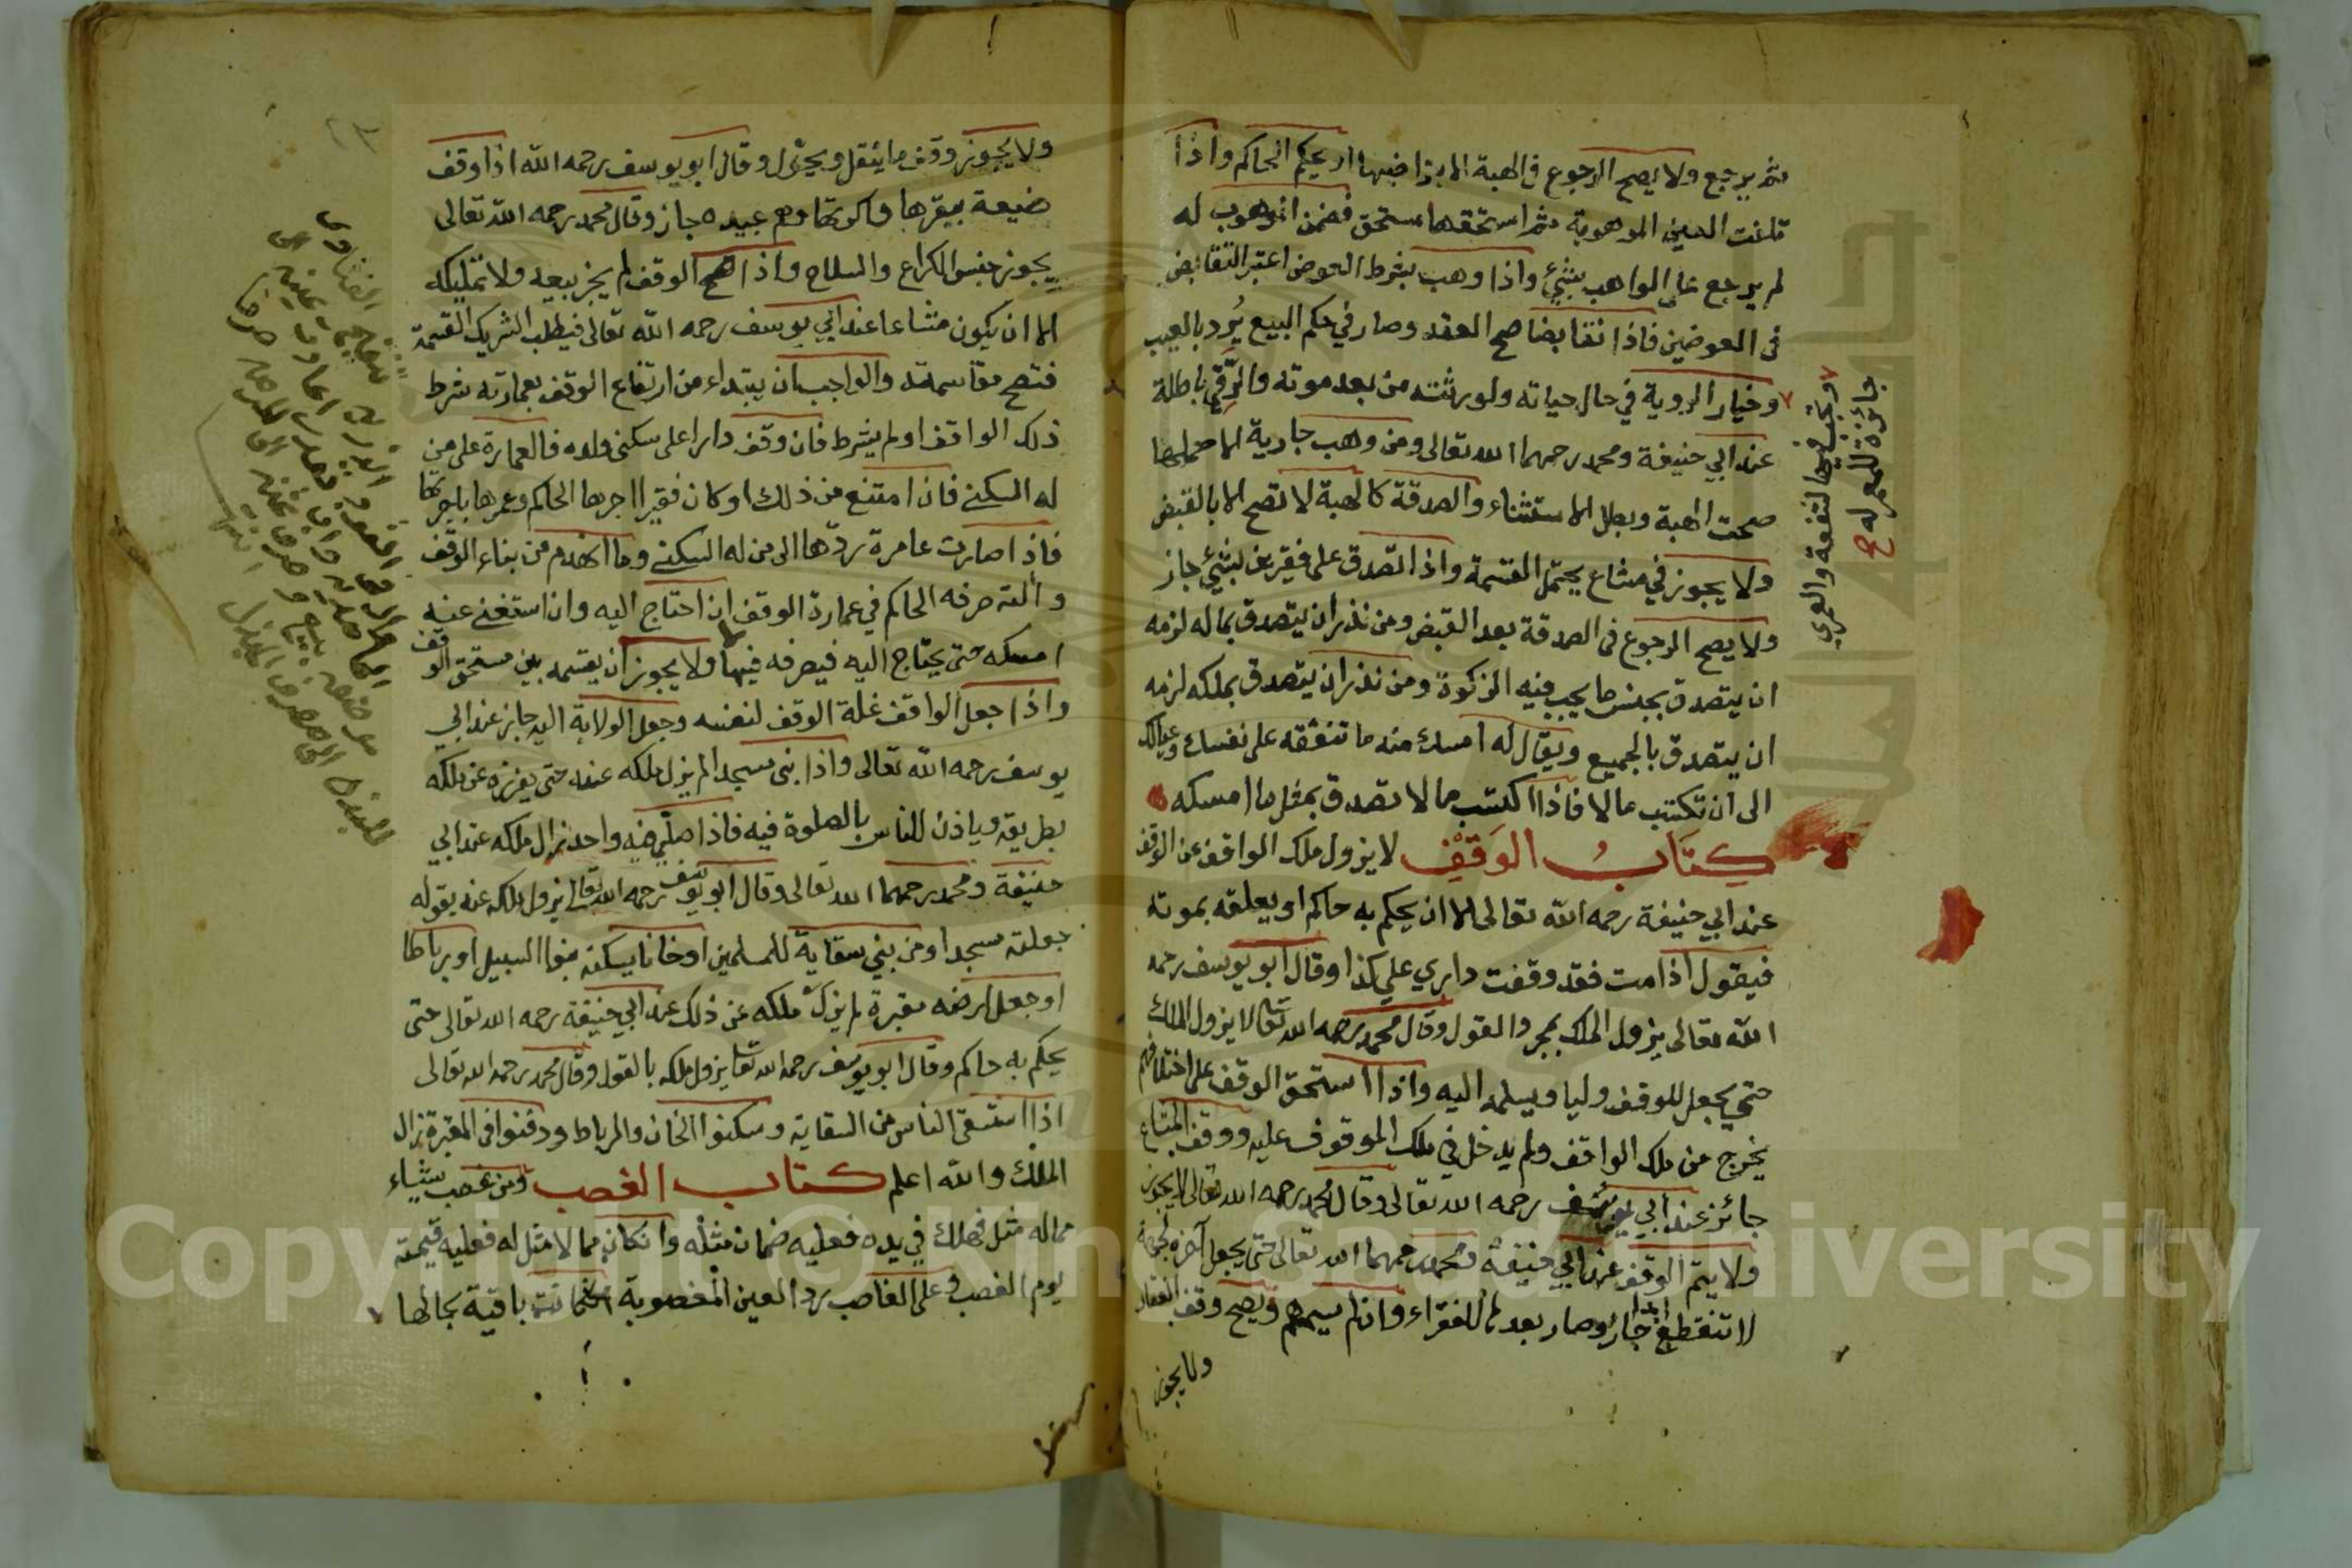 ثم يرجع ولا يصح الرجوع في الهبة الا بتراضيهما او بحكم الحاكم واذا
تلفت العين الموهوبة ثم استحقها مستحق فضمن الموهوب له
لم يرجع على الواهب بشئ واذا وهب بشرط العوض اعتبر التقابض
في العوضين فاذا تقابضا صح العقد وصار في حكم البيع يُرد بالعيب
وخيار الروية في حال حياته ولورثته من بعد موته والرّقبى باطلة
عند ابي حنيفة ومحمد رحمهما الله تعالى ومن وهب جارية الا حملها
صحت الهبة وبطل الاستثناء والصدقة كالهبة لا تصح الا بالقبض
ولا يجوز في مشاع يحتمل القسمة واذا تصدق على فقيرين بشئ جاز
ولا يصح الرجوع في الصدقة بعد القبض ومن نذر ان يتصدق بماله لزمه
ان يتصدق بجنس ما يجب فيه الزكوة ومن نذر ان يتصدق بملكه لزمه
ان يتصدق بالجميع ويقال له امسك منه ما تنفقه على نفسك وعيالك
الى ان تكتسب مالا فاذا اكتسب مالا تصدق بمثل ما امسكه
كتابُ الوَقفْ لا يزول ملك الواقف عن الوقف
عند ابي حنيفة رحمه الله تعالى الا ان يحكم به حاكم او يعلقه بموته
فيقول اذا مت فقد وقفت داري على كذا وقال ابو يوسف رحمه
الله تعالى يزول الملك بمجرد القول وقال محمد رحمه الله تعالى لا يزول الملك
حتى يجعل للوقف وليا ويسلمه اليه واذا استحق الوقف على اختلافهم
يخرج من ملك الواقف ولم يدخل في ملك الموقوف عليه ووقف المشاع
جائز عند ابي يوسف رحمه الله تعالى وقال محمد رحمه الله تعالى لا يجوز
ولا يتم الوقف عند ابي حنيفة ومحمد رحمهما الله تعالى حتى يجعل آخره لجهة
لا تنقطع ابدا جاز وصار بعدها للفقراء وان لم يسمهم ويصح وقف العقار
ولا يجوز
وتجب فيها النفقة والعمرى
جائزة للمعمر له صح
ولا يجوز وقف ما ينقل ويحول وقال ابو يوسف رحمه الله اذا وقف
ضيعة ببقرها واكرتها وهم عبيده جاز وقال محمد رحمه الله تعالى
يجوز حبس الكراع والسلاح واذا صح الوقف لم يجز بيعه ولا تمليكه
الا ان يكون مشاعا عند ابي يوسف رحمه الله تعالى فيطلب الشريك القسمة
فتصح مقاسمته والواجب ان يبتداء من ارتفاع الوقف بعمارته شرط
ذلك الواقف او لم يشرط فان وقف دارا على سكنى ولده فالعمارة على من
له السكنى فان امتنع من ذلك او كان فقيرا اجرها الحاكم وعمرها باجرتها
فاذا صارت عامرة ردّها الى من له السكنى وما انهدم من بناء الوقف
وآلته صرفه الحاكم في عمارة الوقف ان احتاج اليه وان استغنى عنه
امسكه حتى يحتاج اليه فيصرفه فيها ولا يجوز ان يقسمه بين مستحقي الوقف
واذا جعل الواقف غلة الوقف لنفسه وجعل الولاية اليه جايز عند ابي
يوسف رحمه الله تعالى واذا بنى مسجدا لم يزل ملكه عنه حتى يفرزه عن ملكه
بطريقه وياذن للناس بالصلوة فيه فاذا صلى فيه واحد زال ملكه عند ابي
حنيفة ومحمد رحمهما الله تعالى وقال ابو يوسف رحمه الله تعالى يزول ملكه عنه بقوله
جعلته مسجدا ومن بني سقاية للمسلمين او خانا يسكنه بنوا السبيل او رباطا
او جعل ارضه مقبرة لم يزل ملكه عن ذلك عند ابي حنيفة رحمه الله تعالى حتى
يحكم به حاكم وقال ابو يوسف رحمه الله تعا يزول ملكه بالقول وقال محمد رحمه الله تعالى
اذا استسقى الناس من السقاية وسكنوا الخان والرباط ودفنوا في المقبرة زال
الملك والله اعلم كتاب الغصب ومن غصب شيئاء
مماله مثل فهلك في يده فعليه ضمان مثله وان كان مما لا مثل له فعليه قيمته
يوم الغصب وعلى الغاصب رد العين المغصوبة ان كانت باقية بحالها
Copyright © King Saud University